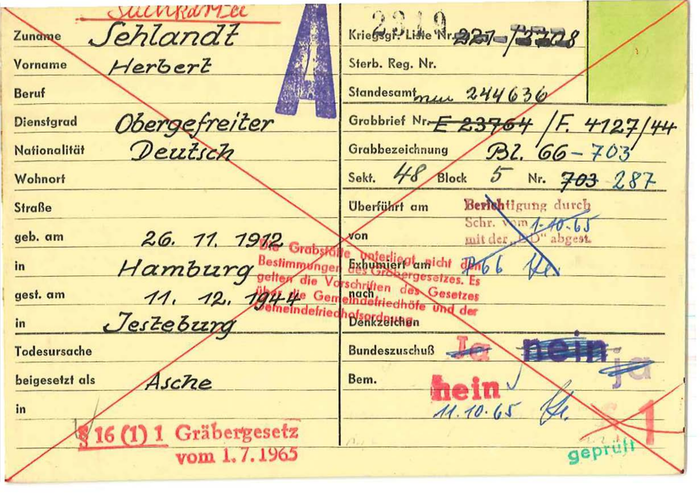 Suchkarte
Zuname Sehlandt
Vorname Herbert
Beruf
Dienstgrad Obergefreiter
Nationalität Deutsch
Wohnort
Straße
geb. am 26. 11. 1912
in Hamburg
gest. am 11. 12. 1944
in Jesteburg
Todesursache
beigesetzt als Asche
in
§ 16 (1) 1 Gräbergesetz
vom 1. 7. 1965
A
2319
Kriegsgr. Liste Nr.
Sterb. Reg. Nr.
Standesamt neu 244636
Grabbrief Nr. E 23764 / F. 4127/44
Grabbezeichnung Bl. 66 - 703
Sekt. 48 Block 5 Nr. 703 287
Überführt am
Berichtigung durch
Schr. vom 1.10.65
mit der „DD“ abgest.
von
Exhumiert am P66
nach
Denkzeichen
Die Grabstätte unterliegt nicht den
Bestimmungen des Gräbergesetzes. Es
gelten die Vorschriften des Gesetzes
über die Gemeindefriedhöfe und der
Gemeindefriedhofsordnung.
Bundeszuschuß Ja nein ja
Bem. nein
11.10.65
1
geprüft